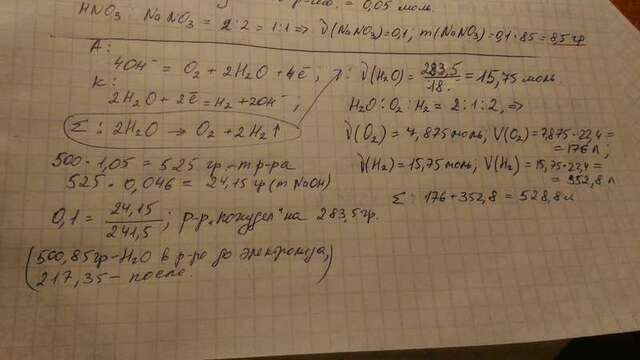 = 0,05 моль.
HNO₃ : NaNO₃ = 2:2 = 1:1 ⇒ ν(NaNO₃)=0,1; m(NaNO₃)=0,1·85=8,5гр
А:
4OH⁻ = O₂ + 2H₂O + 4ē;
К:
2H₂O + 2ē = H₂ + 2OH⁻,
Σ: 2H₂O → O₂ + 2H₂↑
ν: ν(H₂O) = 283,5/18 = 15,75 моль.
H₂O : O₂ : H₂ = 2:1:2, ⇒
ν(O₂) = 7,875 моль, V(O₂) = 7,875·22,4 =
= 176 л;
ν(H₂) = 15,75 моль, V(H₂) = 15,75·22,4 =
= 352,8 л
Σ: 176 + 352,8 = 528,8 л
500 · 1,05 = 525 гр – m р-ра
525 · 0,046 = 24,15 гр (m NaOH)
0,1 = 24,15/241,5; р-р „похудел" на 283,5гр.
(500,85гр – H₂O в р-ре до электролиза,
217,35 – после.)